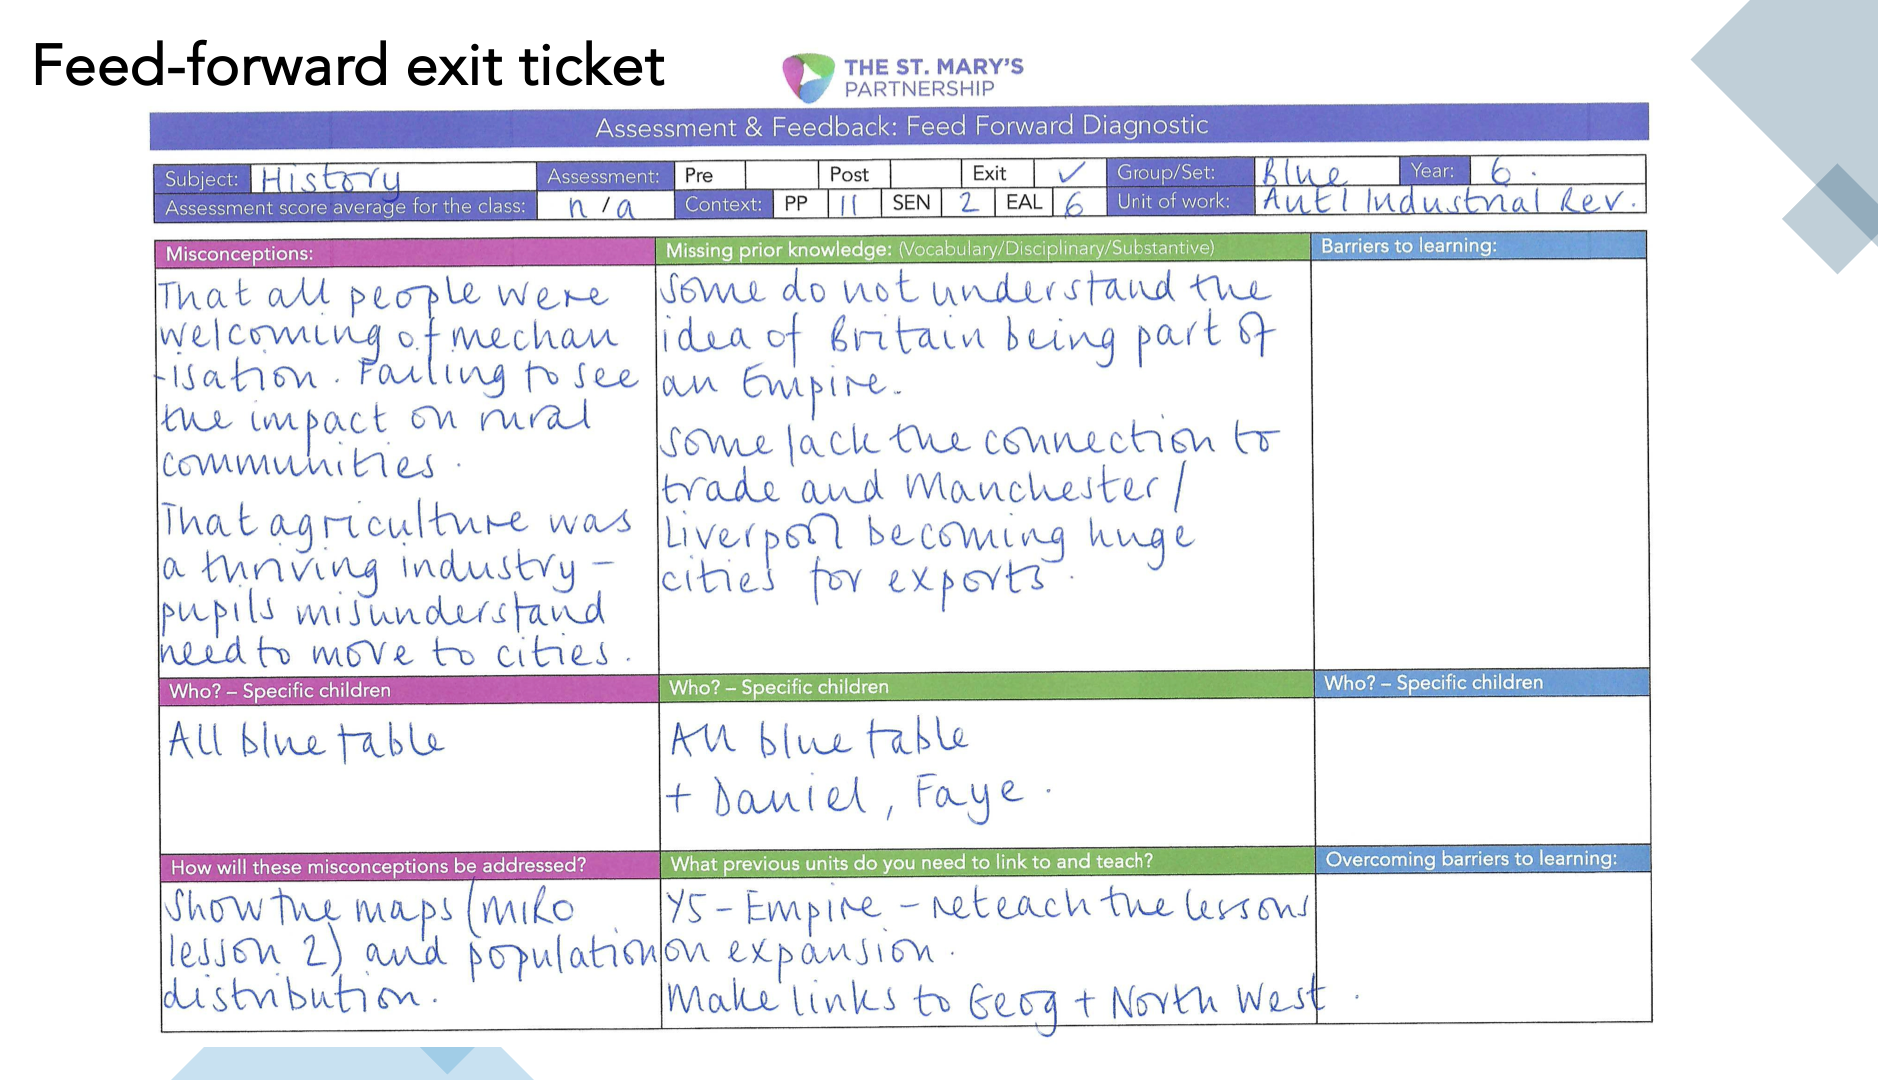 Feed-forward exit ticket
THE ST. MARY'S
PARTNERSHIP
Assessment & Feedback: Feed Forward Diagnostic
Subject: History Assessment: Pre Post Exit ✓ Group/Set: Blue Year: 6.
Assessment score average for the class: n/a Context: PP 11 SEN 2 EAL 6 Unit of work: Industrial Rev.
Misconceptions:
That all people were
welcoming of mechan
-isation. Failing to see
the impact on rural
communities.
That agriculture was
a thriving industry –
pupils misunderstand
need to move to cities.
Who? – Specific children
All blue table
How will these misconceptions be addressed?
Show the maps (MIRO
lesson 2) and population
distribution.
Missing prior knowledge: (Vocabulary/Disciplinary/Substantive)
Some do not understand the
idea of Britain being part of
an Empire.
Some lack the connection to
trade and Manchester/
Liverpool becoming huge
cities for exports.
Who? – Specific children
All blue table
+ Daniel, Faye.
What previous units do you need to link to and teach?
Y5 – Empire – reteach the lessons
on expansion.
Make links to Geog + North West.
Barriers to learning:
Who? – Specific children
Overcoming barriers to learning: